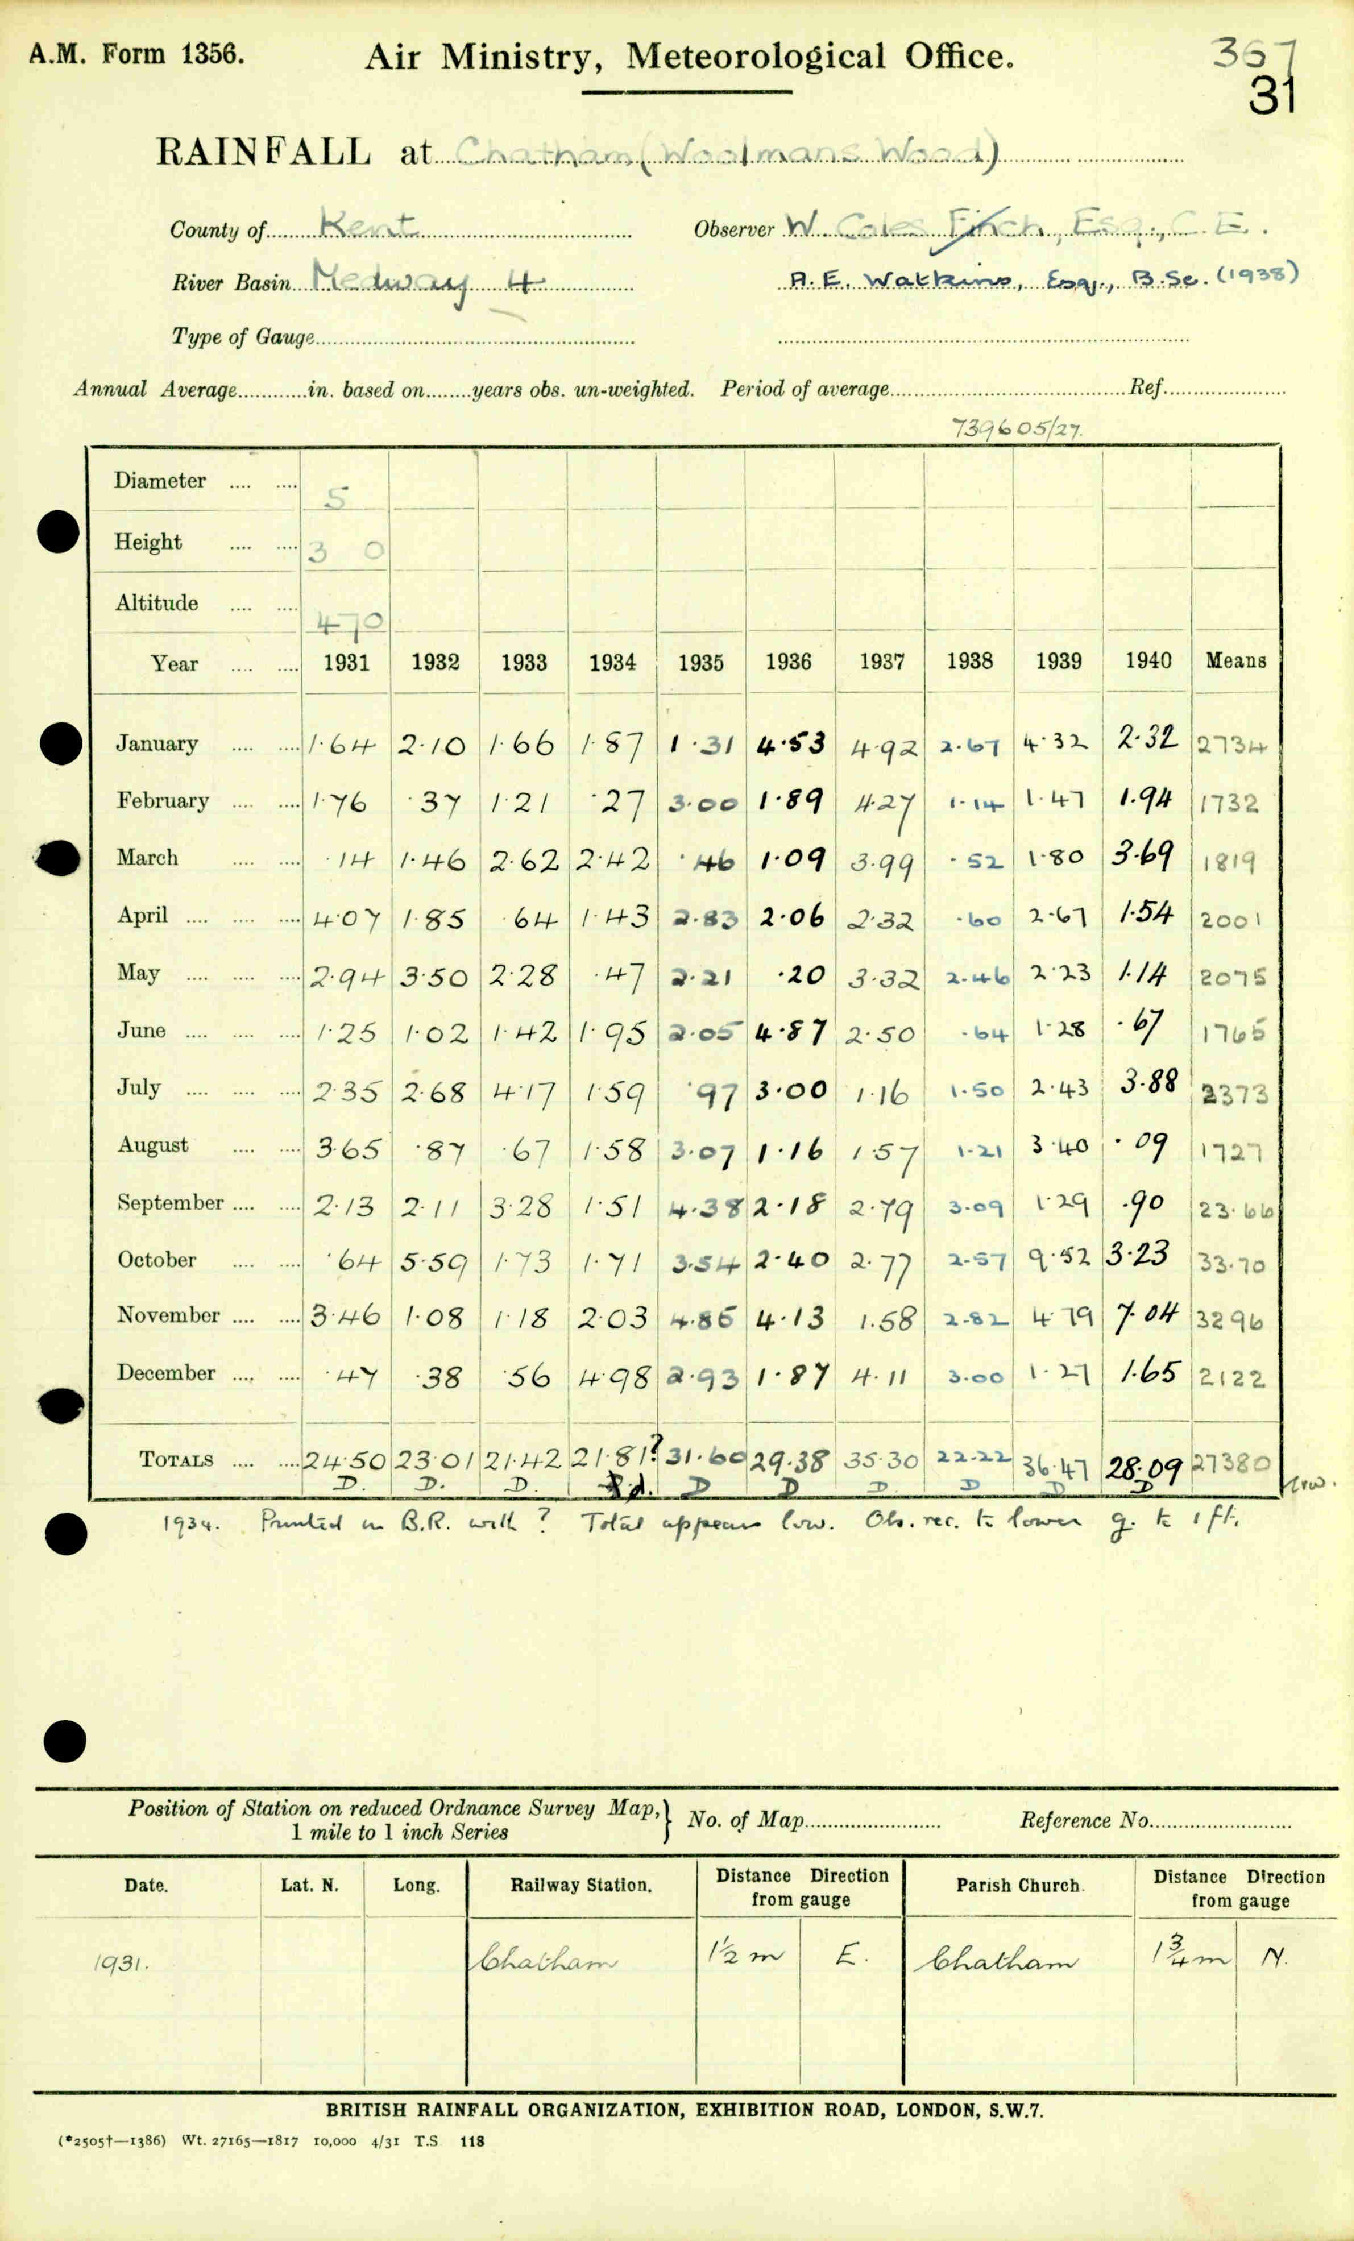 A.M. Form 1356. Air Ministry, Meteorological Office. 367
31
RAINFALL at Chatham (Woolmans Wood)
County of Kent Observer W. Coles Finch, Esq., C.E.
River Basin Medway 4 A. E. Watkins, Esq., B.Sc. (1938)
Type of Gauge
Annual Average in. based on years obs. un-weighted. Period of average Ref.
739605/27.
Diameter 5
Height 3 0
Altitude 470
Year 1931 1932 1933 1934 1935 1936 1937 1938 1939 1940 Means
January 1·64 2·10 1·66 1·87 1·31 4·53 4·92 2·67 4·32 2·32 2734
February 1·76 ·37 1·21 ·27 3·00 1·89 4·27 1·14 1·47 1·94 1732
March ·14 1·46 2·62 2·42 ·46 1·09 3·99 ·52 1·80 3·69 1819
April 4·07 1·85 ·64 1·43 2·83 2·06 2·32 ·60 2·67 1·54 2001
May 2·94 3·50 2·28 ·47 2·21 ·20 3·32 2·46 2·23 1·14 2075
June 1·25 1·02 1·42 1·95 2·05 4·87 2·50 ·64 1·28 ·67 1765
July 2·35 2·68 4·17 1·59 ·97 3·00 1·16 1·50 2·43 3·88 2373
August 3·65 ·87 ·67 1·58 3·07 1·16 1·57 1·21 3·40 ·09 1727
September 2·13 2·11 3·28 1·51 4·38 2·18 2·79 3·09 1·29 ·90 23·66
October ·64 5·59 1·73 1·71 3·54 2·40 2·77 2·57 9·52 3·23 33·70
November 3·46 1·08 1·18 2·03 4·85 4·13 1·58 2·82 4·79 7·04 3296
December ·47 ·38 ·56 4·98 2·93 1·87 4·11 3·00 1·27 1·65 2122
TOTALS 24·50 23·01 21·42 21·81? 31·60 29·38 35·30 22·22 36·47 28·09 27380
D. D. D. d. D D D. D D D
1934. Printed in B.R. with ? Total appears low. Obs. rec. to lower g. to 1 ft.
Position of Station on reduced Ordnance Survey Map, } No. of Map Reference No.
1 mile to 1 inch Series
Date. Lat. N. Long. Railway Station. Distance Direction from gauge Parish Church Distance Direction from gauge
1931. Chatham 1½ m E. Chatham 1¾ m N.
BRITISH RAINFALL ORGANIZATION, EXHIBITION ROAD, LONDON, S.W.7.
(*2505†—1386) Wt. 27165—1817 10,000 4/31 T.S 118